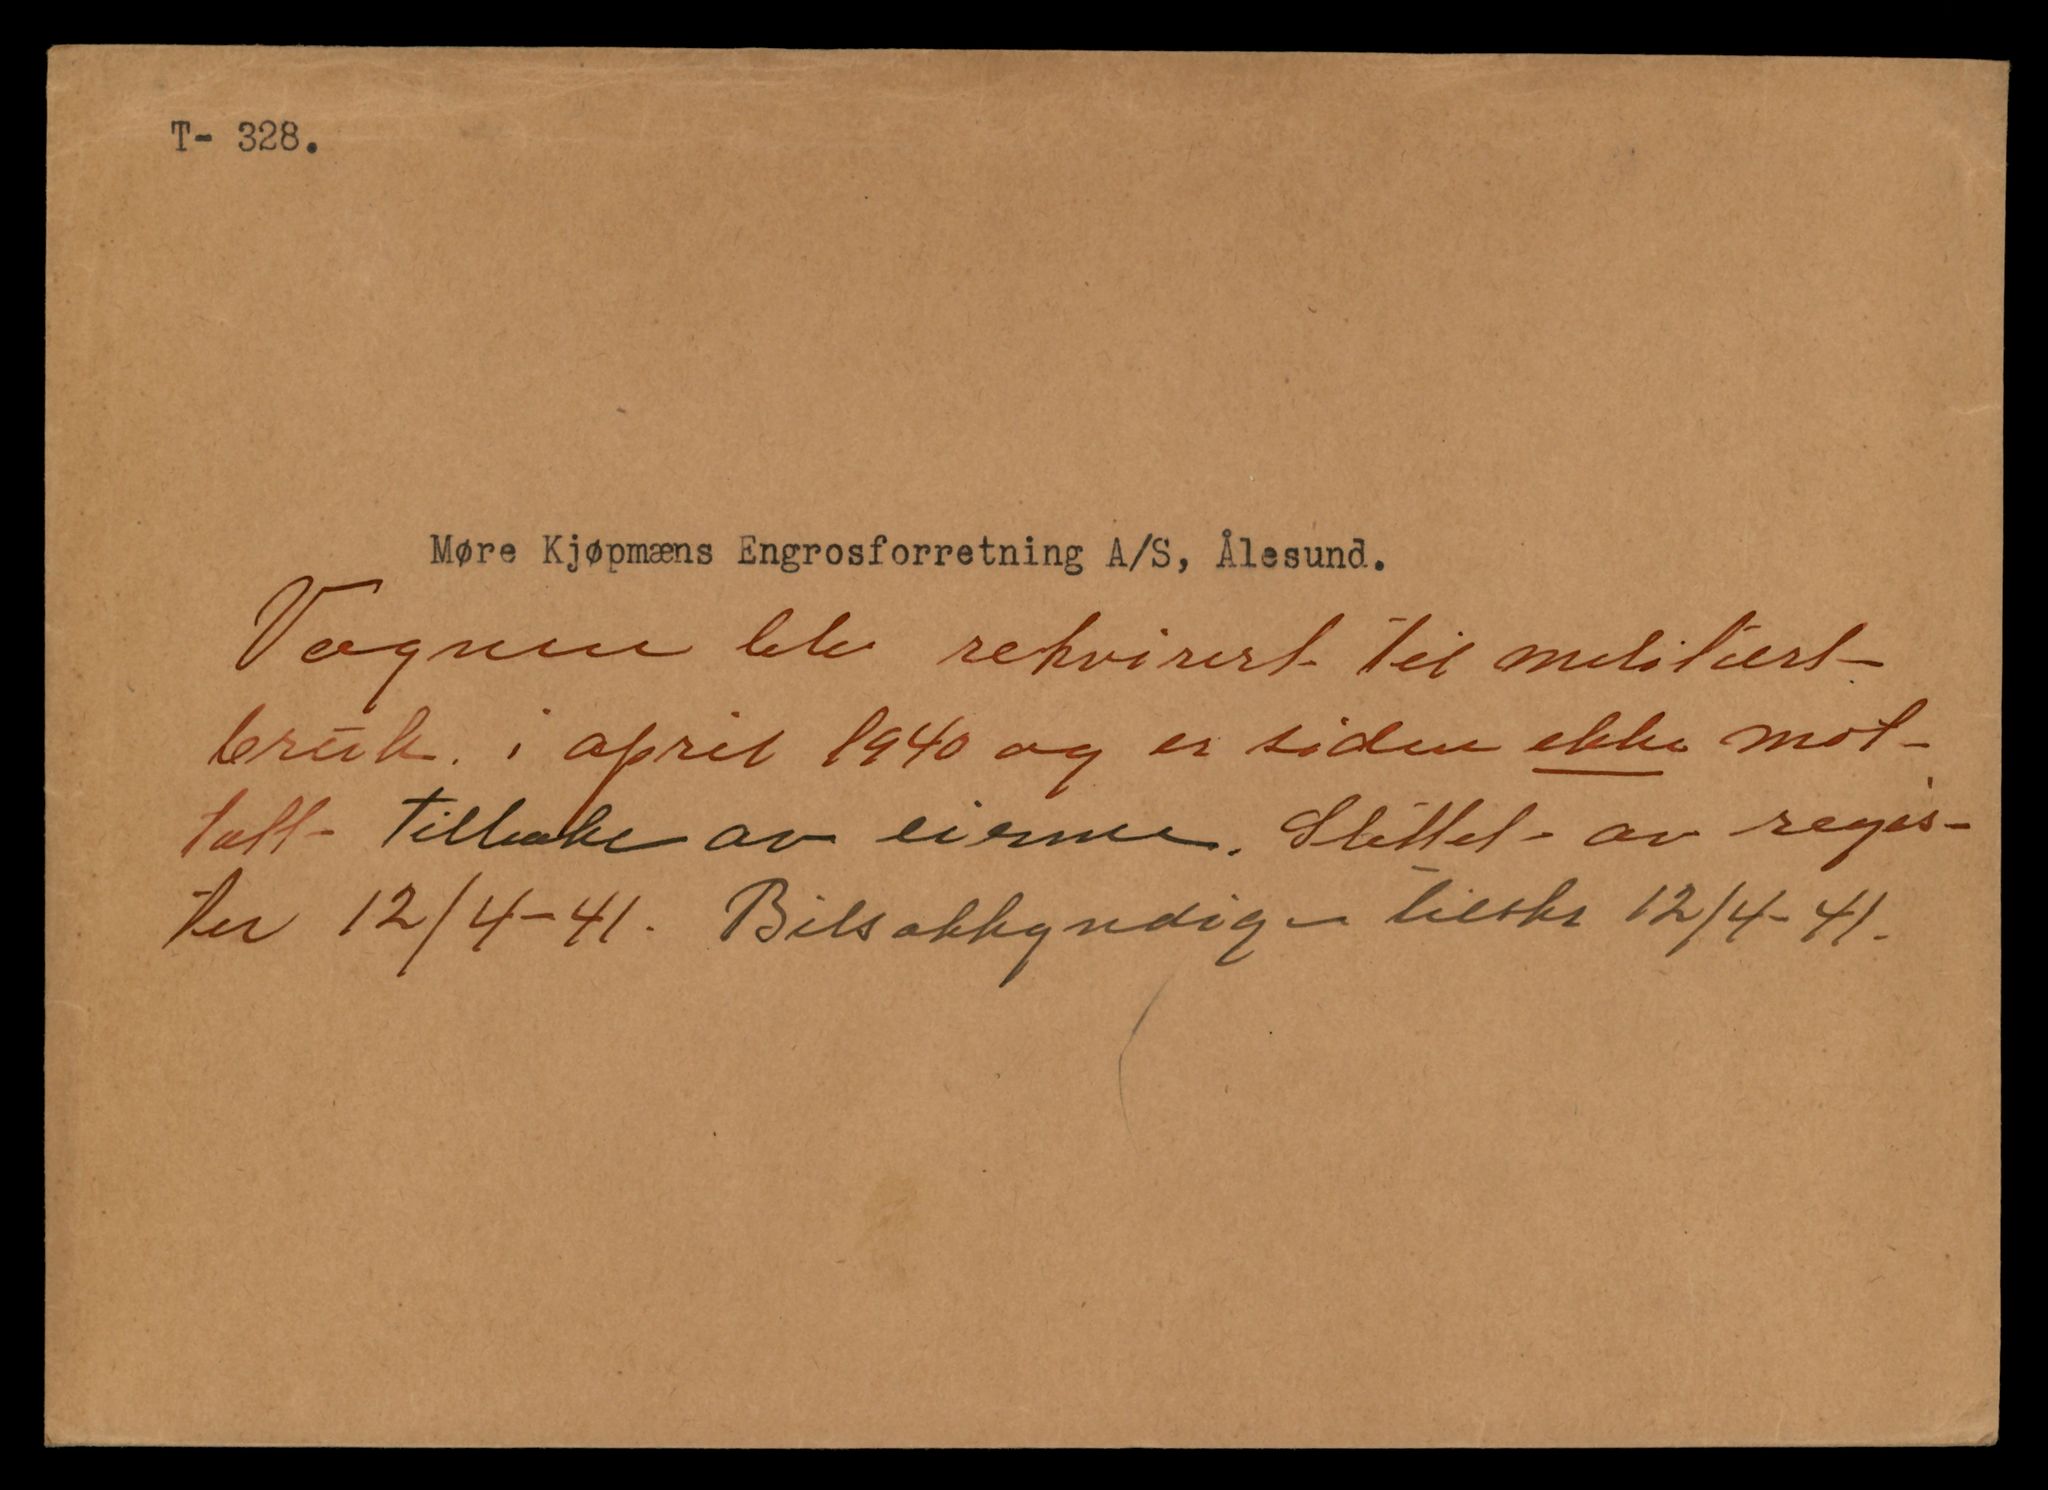 T- 328.
Møre Kjøpmæns Engrosforretning A/S, Ålesund.
Vognen ble rekvirert til militært
bruk. i april 1940 og er siden ikke mot-
tatt tilbake av eierne. Slettet av regis-
ter 12/4-41. Bilsakkyndige tilskr 12/4-41.